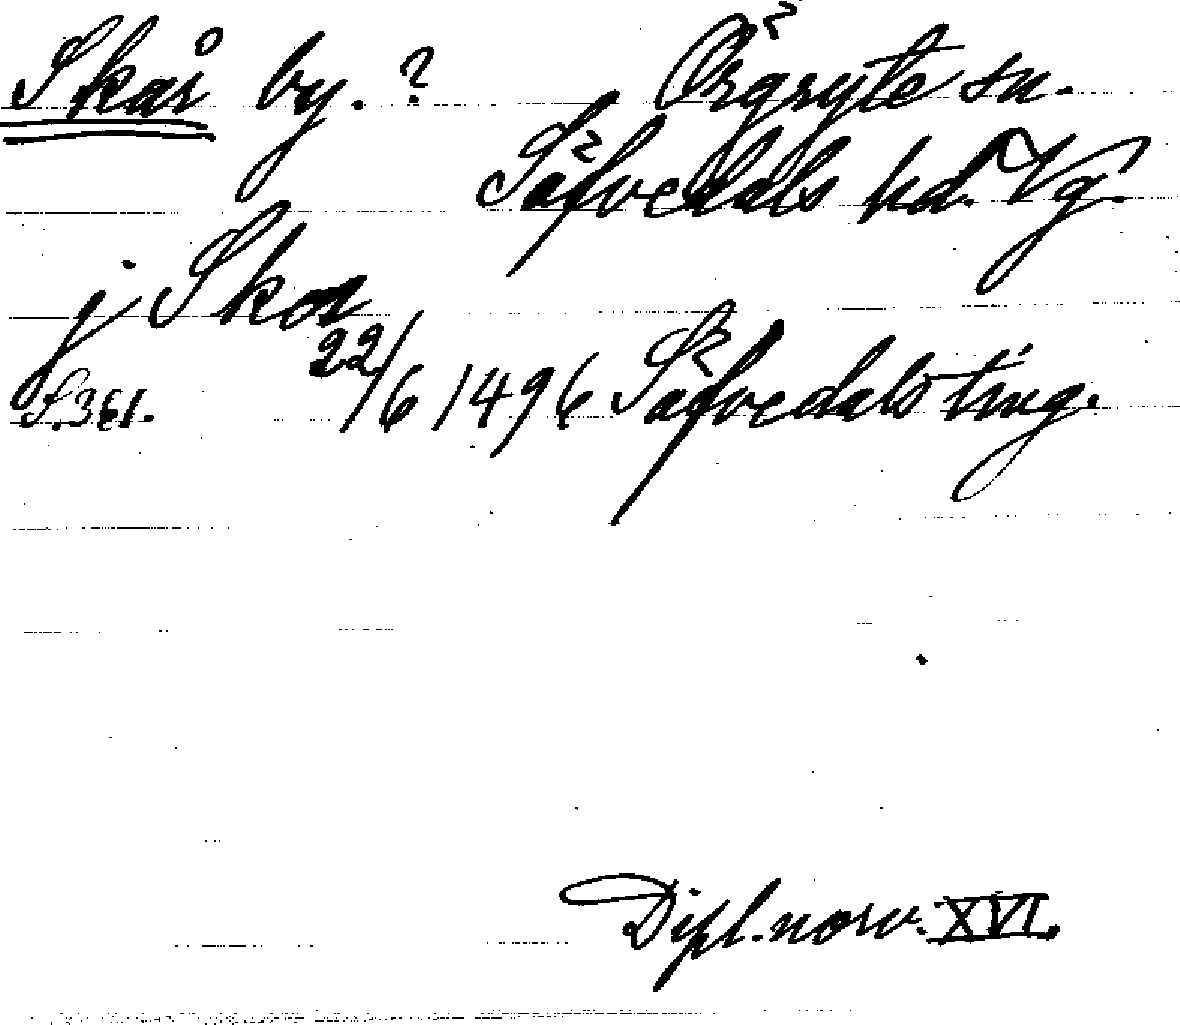 Skår by. ? Örgryte sn.
Säfvedals hd. Vg.
j Skor
S. 361. 22/6 1496 Säfvedals ting.
Dipl. norv. XVI.